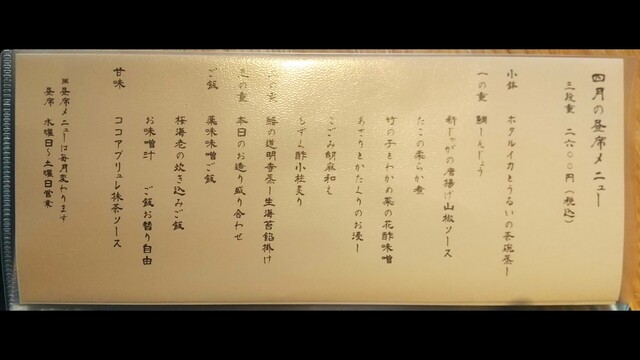 四月の昼席メニュー
三段重 二六〇〇円（税込）
小鉢 ホタルイカとうるいの茶碗蒸し
一の重 鯛しんじょう
新じゃがの唐揚げ山椒ソース
たこの柔らか煮
竹の子とわかめ菜の花酢味噌
あさりとかたくりのお浸し
こごみ胡麻和え
もずく酢小柱炙り
二の重 鰆の道明寺蒸し生海苔餡掛け
三の重 本日のお造り盛り合わせ
ご飯 薬味味噌ご飯
桜海老の炊き込みご飯
お味噌汁 ご飯お替り自由
甘味 ココアブリュレ抹茶ソース
※昼席メニューは毎月変わります
昼席 水曜日～土曜日営業